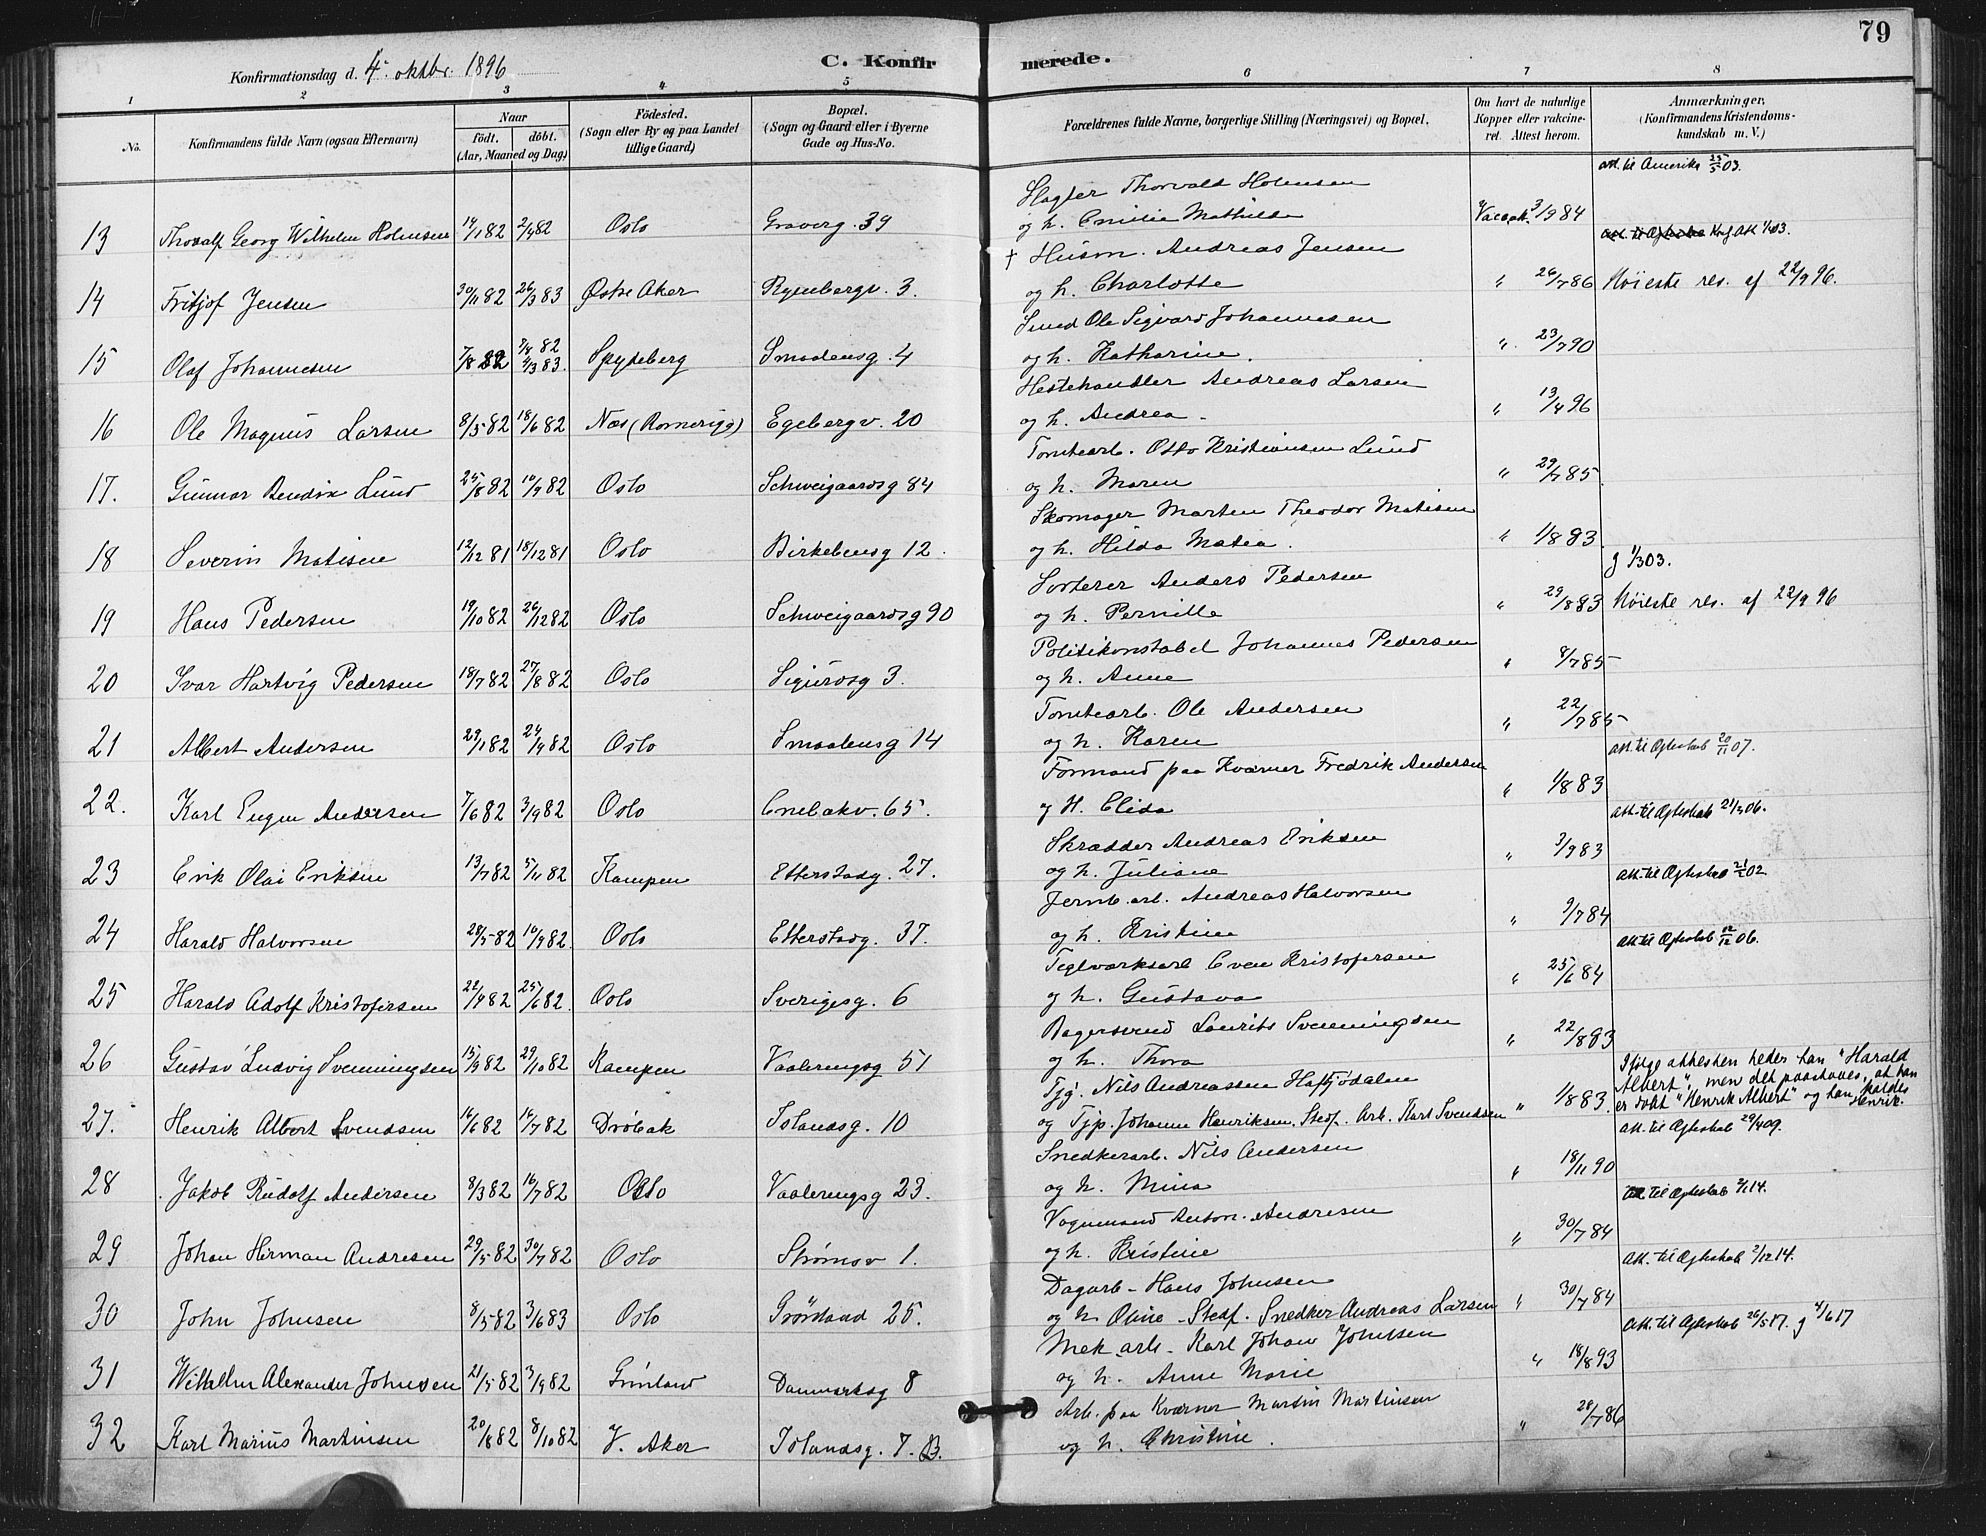 79
Konfirmationsdag d. 4. oktbr. 1896
C. Konfirmerede.
1 2 3 4 5 6 7 8
No.
Konfirmandens fulde Navn (ogsaa Efternavn)
Naar
Födt. döbt.
(Aar, Maaned og Dag)
Födested.
(Sogn eller By og paa Landet
tillige Gaard)
Bopæl.
(Sogn og Gaard eller i Byerne
Gade og Hus-No.
Forældrenes fulde Navne, borgerlige Stilling (Næringsvei) og Bopæl.
Om havt de naturlige
Kopper eller vakcine-
ret. Attest herom.
Anmærkninger.
(Konfirmandens Kristendoms-
kundskab m. V.)
att. til Amerika 25/5 03.
Slagter Thorvald Holmsen
13 Thoralf Georg Wilhelm Holmsen 14/1 82 2/4 82 Oslo Graverg. 39 og h. Emilie Mathilde Vacc.at. 3/9 84
† Husm. Andreas Jensen
14 Fritjof Jensen 30/11 82 26/3 83 Østre Aker Ryenbergv. 3. og h. Charlotte " 26/7 86 Nøieste res. af 22/9 96.
Smed Ole Sigvard Johannesen
15 Olaf Johannesen 7/8 82 4/3 83. Spydeberg Smaalensg. 4 og h. Katharine. " 23/7 90
Hestehandler Andreas Larsen
16 Ole Magnus Larsen 8/5 82 18/6 82 Næs (Romerige) Egebergv. 20 og h. Andrea. " 13/4 96
Tomtearb. Otto Kristiansen Lund
17. Gunnar Bendix Lund 25/8 82 10/9 82 Oslo Schweigaardsg 84 og h. Maren " 29/7 85
Skomager Marten Theodor Matisen
18 Severin Matisen 12/12 81 18/12 81 Oslo Birkebensg 12. og h. Hilda Matea. " 1/8 83
g 1/3 03.
Sorterer Anders Pedersen
19 Hans Pedersen 19/10 82 26/12 82 Oslo Schweigaardsg 90 og h. Pernille " 29/8 83 Nøieste res. af 22/9 96
Politikonstabel Johannes Pedersen
20 Ivar Hartvig Pedersen 18/7 82 27/8 82 Oslo Sigurdsg 3. og h. Anne " 8/7 85
Tomtearb. Ole Andersen
21 Albert Andersen 29/1 82 24/9 82 Oslo Smaalensg 14 og h. Karen " 22/7 85
att. til Ægteskab 20/11 07.
Formand paa Kværner Fredrik Andersen
22. Karl Eugen Andersen 7/6 82 3/9 82 Oslo Enebakv. 65. og H. Elida " 1/8 83
att. til Ægteskab 21/3 06.
Skrædder Andreas Eriksen
23 Erik Olai Eriksen 13/7 82 5/11 82 Kampen Etterstadg. 27. og h. Juliane " 3/9 83
att. til Ægteskab 21/2 02
Jernb. arb. Andreas Halvorsen
24 Harald Halvorsen 28/5 82 10/9 82. Oslo Etterstadg. 37. og h. Kristine " 9/7 84
att. til Ægteskab 12/12 06.
Teglværksarb Even Kristofersen
25 Harald Adolf Kristofersen 22/4 82 25/6 82. Oslo Sverigesg. 6 og h. Gustava " 25/6 84
Bagersvend Laurits Svenningsen
26 Gustav Ludvig Svenningsen 15/9 82 29/10 82 Kampen Vaalerengsg 51 og h. Thora " 22/8 93
Ifölge attesten heder han "Harald
Albert", men det paastaaes, at han
er döbt "Henrik Albert" og han kaldes
Henrik.
Tjg. Nils Andreassen Haftjödalen
27. Henrik Albert Svendsen 16/6 82 16/7 82 Dröbak Islandsg. 10 og Tjp. Johanne Henriksen. Stedf. Arb. Karl Svendsen " 1/8 83.
att. til Ægteskab 29/4 09.
Snedkerarb. Nils Andersen
28 Jakob Rudolf Andersen 8/3 82 16/7 82 Oslo Vaalerengsg 23. og h. Mina " 18/11 90
att. til Ægteskab 2/1 14.
Vognmand Anton Andresen
29 Johan Herman Andresen 29/5 82 30/7 82 Oslo Strömsv 1. og h. Kristine " 30/7 84
att. til Ægteskab 2/12 14.
Dagarb. Hans Johnsen
30 John Johnsen 8/5 82 3/6 83 Oslo Grönland 25. og h Oline Stedf. Snedker Andreas Larsen " 30/7 84
att. til Ægteskab 26/5 17. g 4/6 17
Mek. arb. Karl Johan Johnsen
31 Wilhelm Alexander Johnsen 21/5 82 3/9 82 Grönland Danmarksg 8 og h. Anne Marie " 18/8 93
Arb. paa Kværner Martin Martinsen
32 Karl Marius Martinsen 20/8 82 8/10 82 V. Aker Islandsg. 7. B. og h. Christine. " 28/7 86